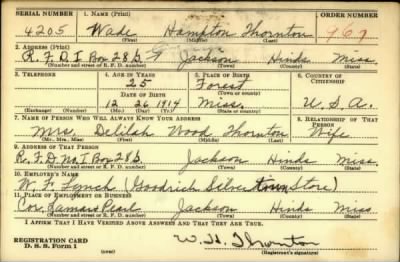 SERIAL NUMBER 1. NAME (Print) ORDER NUMBER
4205 Wade Hampton Thornton 967
(First) (Middle) (Last)
2. ADDRESS (Print)
R.F.D. 1 Box 285 Jackson Hinds Miss.
(Number and street or R. F. D. number) (Town) (County) (State)
3. TELEPHONE 4. AGE IN YEARS 5. PLACE OF BIRTH 6. COUNTRY OF CITIZENSHIP
25 Forest
DATE OF BIRTH (Town or county)
12 26 1914 Miss. U.S.A.
(Exchange) (Number) (Mo.) (Day) (Yr.) (State or country)
7. NAME OF PERSON WHO WILL ALWAYS KNOW YOUR ADDRESS 8. RELATIONSHIP OF THAT PERSON
Mrs. Delilah Wood Thornton Wife
(Mr., Mrs., Miss) (First) (Middle) (Last)
9. ADDRESS OF THAT PERSON
R.F.D. No 1 Box 285 Jackson Hinds Miss
(Number and street or R. F. D. number) (Town) (County) (State)
10. EMPLOYER'S NAME
W. F. Lynch (Goodrich Silvertown Store)
11. PLACE OF EMPLOYMENT OR BUSINESS
Cor. Lamar & Pearl Jackson Hinds Miss
(Number and street or R. F. D. number) (Town) (County) (State)
I AFFIRM THAT I HAVE VERIFIED ABOVE ANSWERS AND THAT THEY ARE TRUE.
REGISTRATION CARD
D. S. S. Form 1 (over) W. H. Thornton
(Registrant's signature)